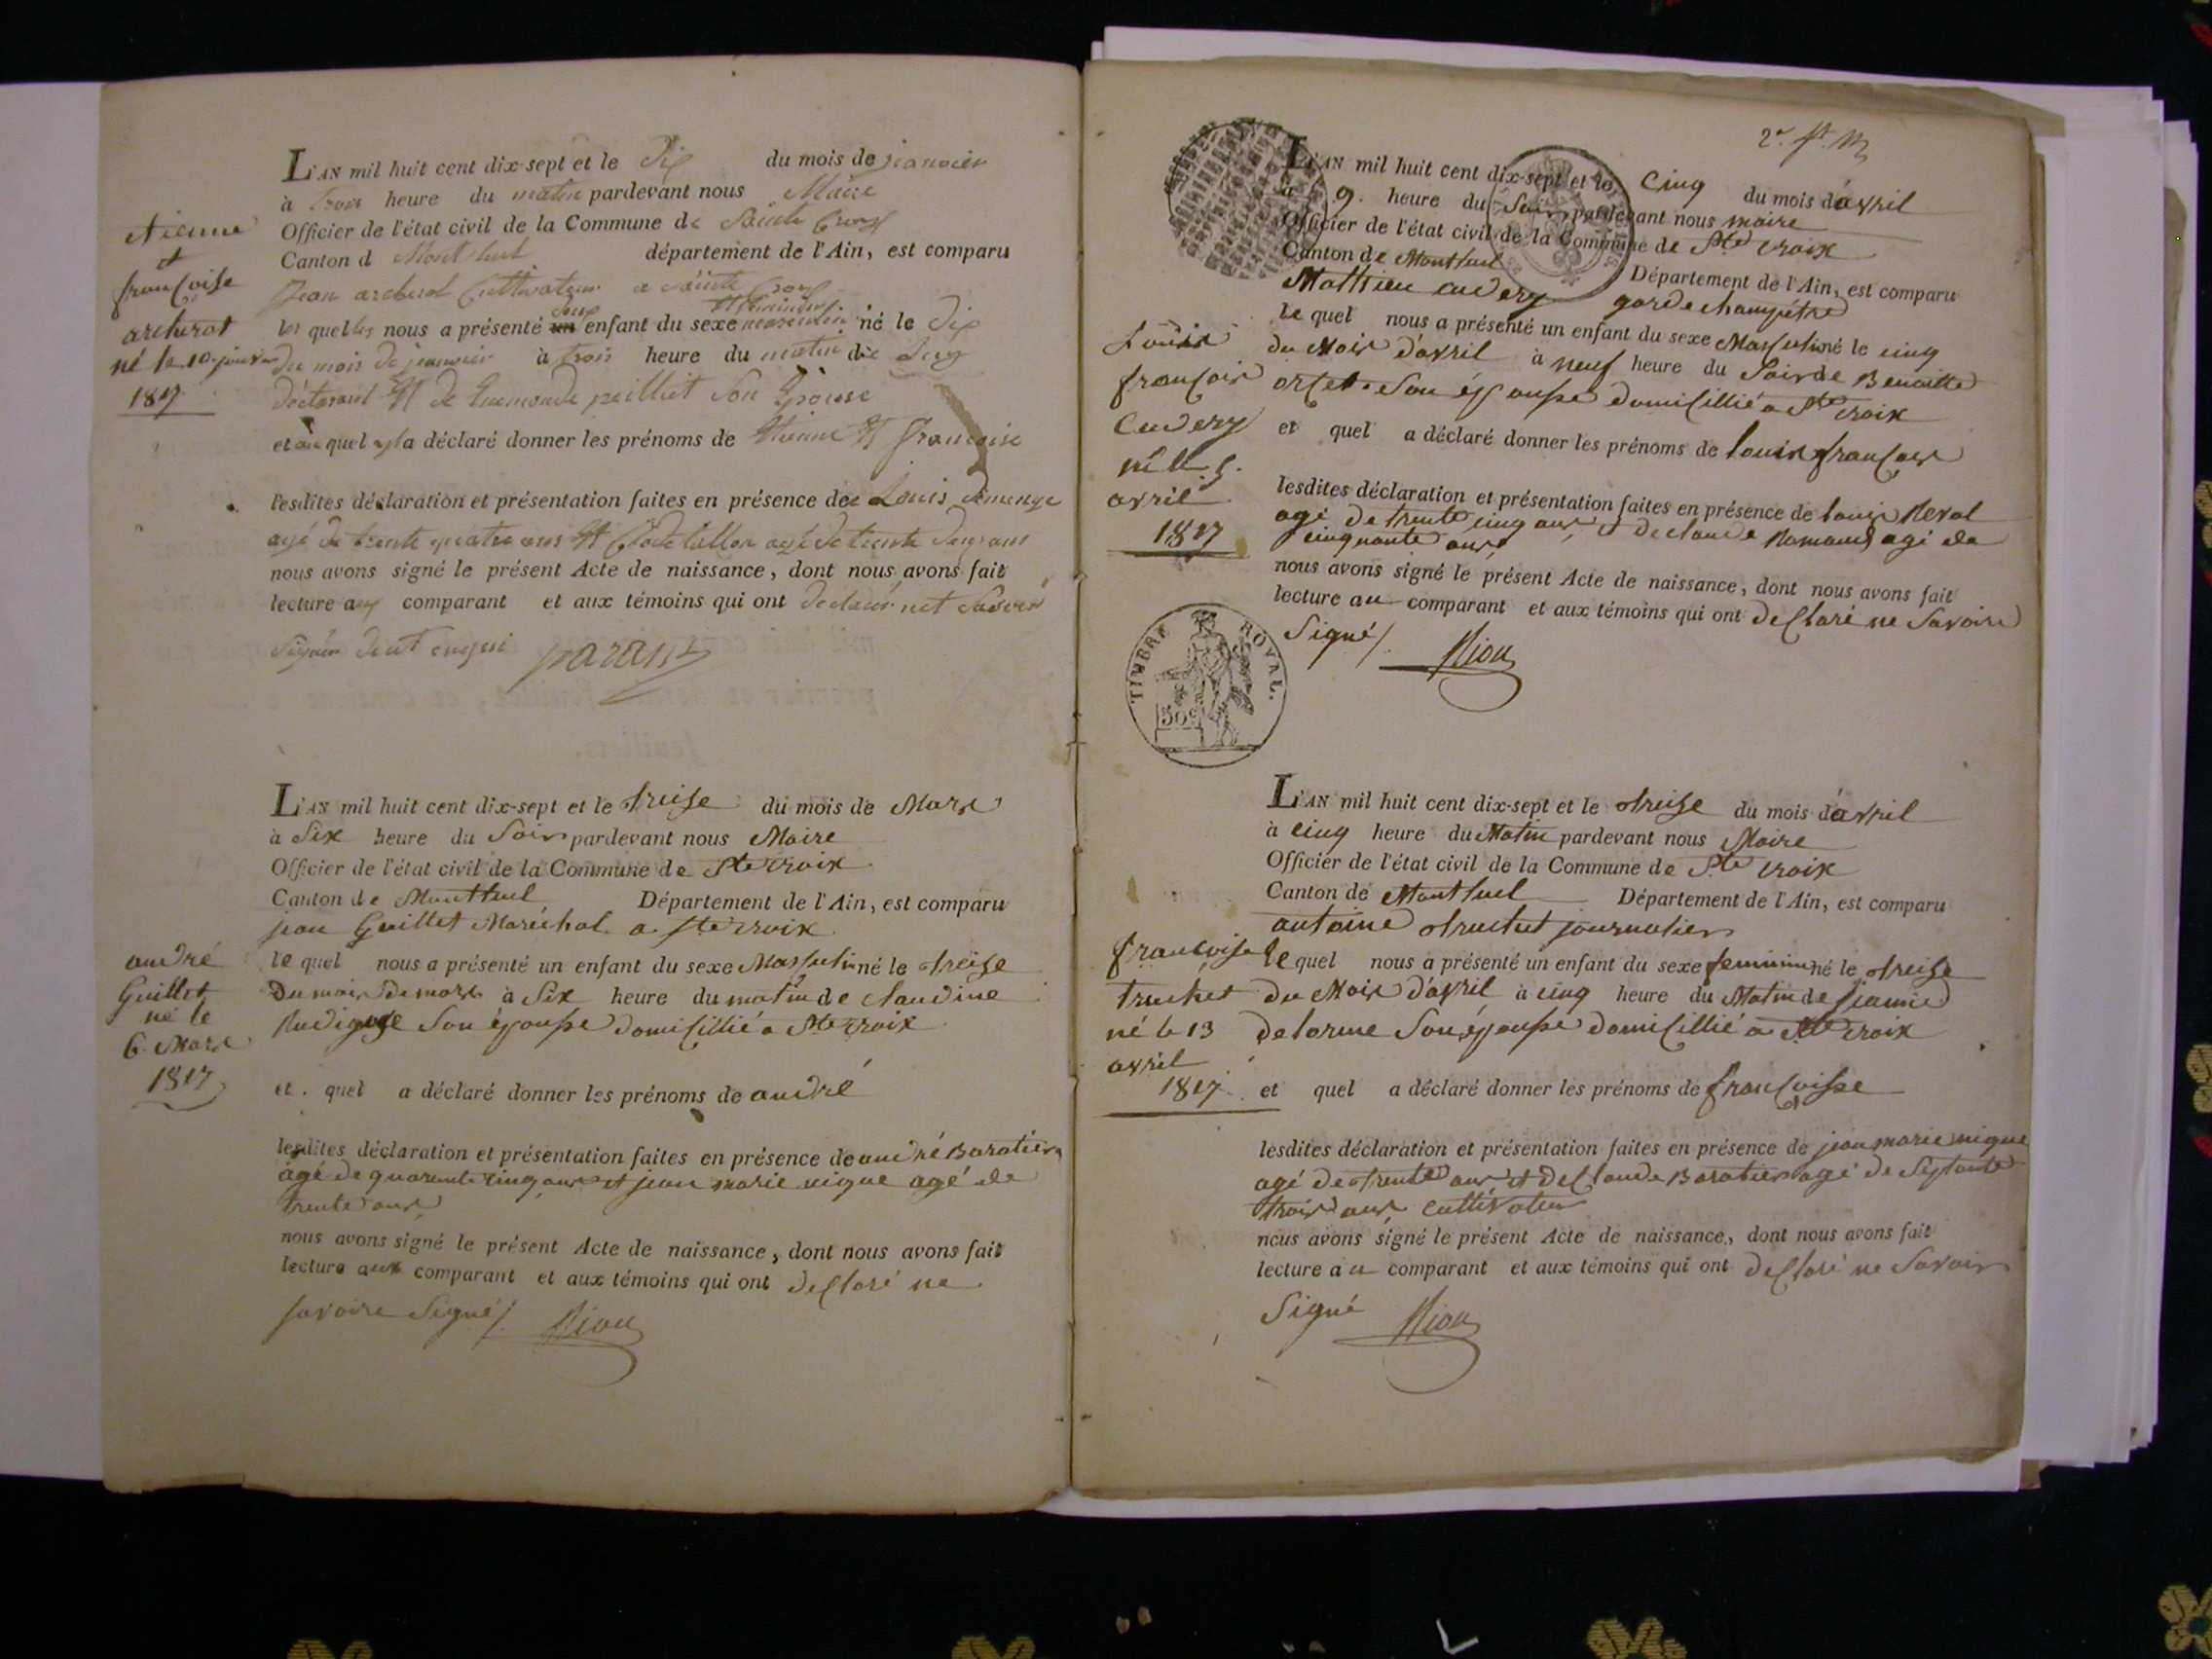 L'AN mil huit cent dix-sept et le Dix du mois de janvier
à trois heure du matin pardevant nous Maire
Officier de l'état civil de la Commune de Sainte Croix
Canton d Montluel département de l'Ain, est comparu
Jean archerat Cultivateur a Sainte Croix
les quelles nous a présenté un deux enfant du sexe masculin et feminin né le Dix
du mois de janvier à trois heure du matin
et de son Epouse
et quel a déclaré donner les prénoms de Etienne et Francoise
lesdites déclaration et présentation faites en présence de Louis
agé de trente quatre ans et agé de trente
nous avons signé le présent Acte de naissance, dont nous avons fait
lecture aux comparant et aux témoins qui ont declaré
signer
parant
etienne
et
françoise
archerat
né le 10 janvier
1817
L'AN mil huit cent dix-sept et le treise du mois de Mars
à Six heure du Soir pardevant nous Maire
Officier de l'état civil de la Commune de Ste croix
Canton de Montluel Département de l'Ain, est comparu
jean Guillet Maréchal a Ste croix
le quel nous a présenté un enfant du sexe Masculin né le treise
Du mois de mars à Six heure du matin de claudine
Son épouse Domicillié a Ste croix
et quel a déclaré donner les prénoms de andré
lesdites déclaration et présentation faites en présence de andré Baratier
agé de quarente cinq ans et jean marie nique agé de
trente ans
nous avons signé le présent Acte de naissance, dont nous avons fait
lecture aux comparant et aux témoins qui ont declaré ne
savoire Signé /. Riou
andré
Guillet
né le
6 Mars
1817
2e ft
L'AN mil huit cent dix-sept et le Cinq du mois d'avril
à 9 heure du Soir pardevant nous maire
Officier de l'état civil de la Commune de Ste croix
Canton de Montluel Département de l'Ain, est comparu
Mathieu cudery garde champétre
le quel nous a présenté un enfant du sexe Masculin né le cinq
du Mois d'avril à neuf heure du Soir de Benoitte
orset Son épouse domicillié a Ste croix
et quel a déclaré donner les prénoms de louis françois
lesdites déclaration et présentation faites en présence de louis
agé de trente cinq ans et de claude agé de
cinquante ans
nous avons signé le présent Acte de naissance, dont nous avons fait
lecture au comparant et aux témoins qui ont declaré ne Savoire
Signé /. Riou
Louis
françois
Cudery
né le 5
avril
1817
TIMBRE ROYAL.
50c
L'AN mil huit cent dix-sept et le treise du mois d'avril
à cinq heure du Matin pardevant nous Maire
Officier de l'état civil de la Commune de Ste croix
Canton de Montluel Département de l'Ain, est comparu
antoine truchet journalier
le quel nous a présenté un enfant du sexe feminin né le treise
du Mois d'avril à cinq heure du Matin de jeanne
delorme Son épouse domicillié a Ste croix
et quel a déclaré donner les prénoms de françoisse
lesdites déclaration et présentation faites en présence de jean marie nique
agé de trente ans et de claude Baratier agé de Septante
trois ans cultivateur
nous avons signé le présent Acte de naissance, dont nous avons fait
lecture au comparant et aux témoins qui ont declaré ne Savoir
Signé Riou
francoise
truchet
né le 13
avril
1817